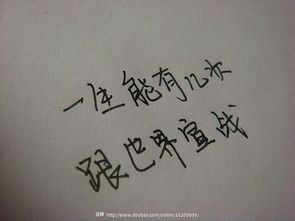 一生能有几次
跟世界宣战
豆瓣 http://www.douban.com/online/11103605/